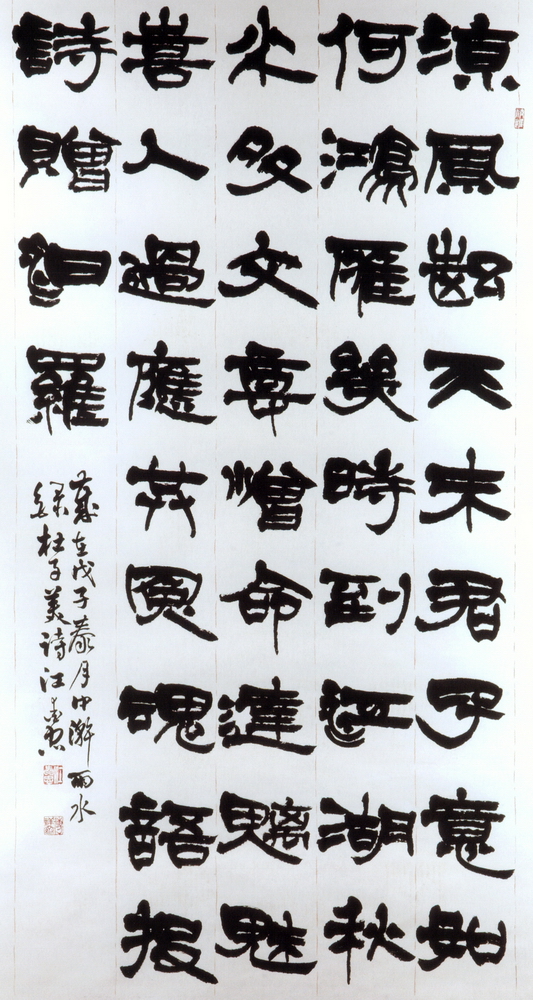 涼風起天末君子意如
何鴻雁幾時到江湖秋
水多文章憎命達魑魅
喜人過應共冤魂語投
詩贈汨羅
歲在戊子泰月中澣雨水
錄杜子美詩江